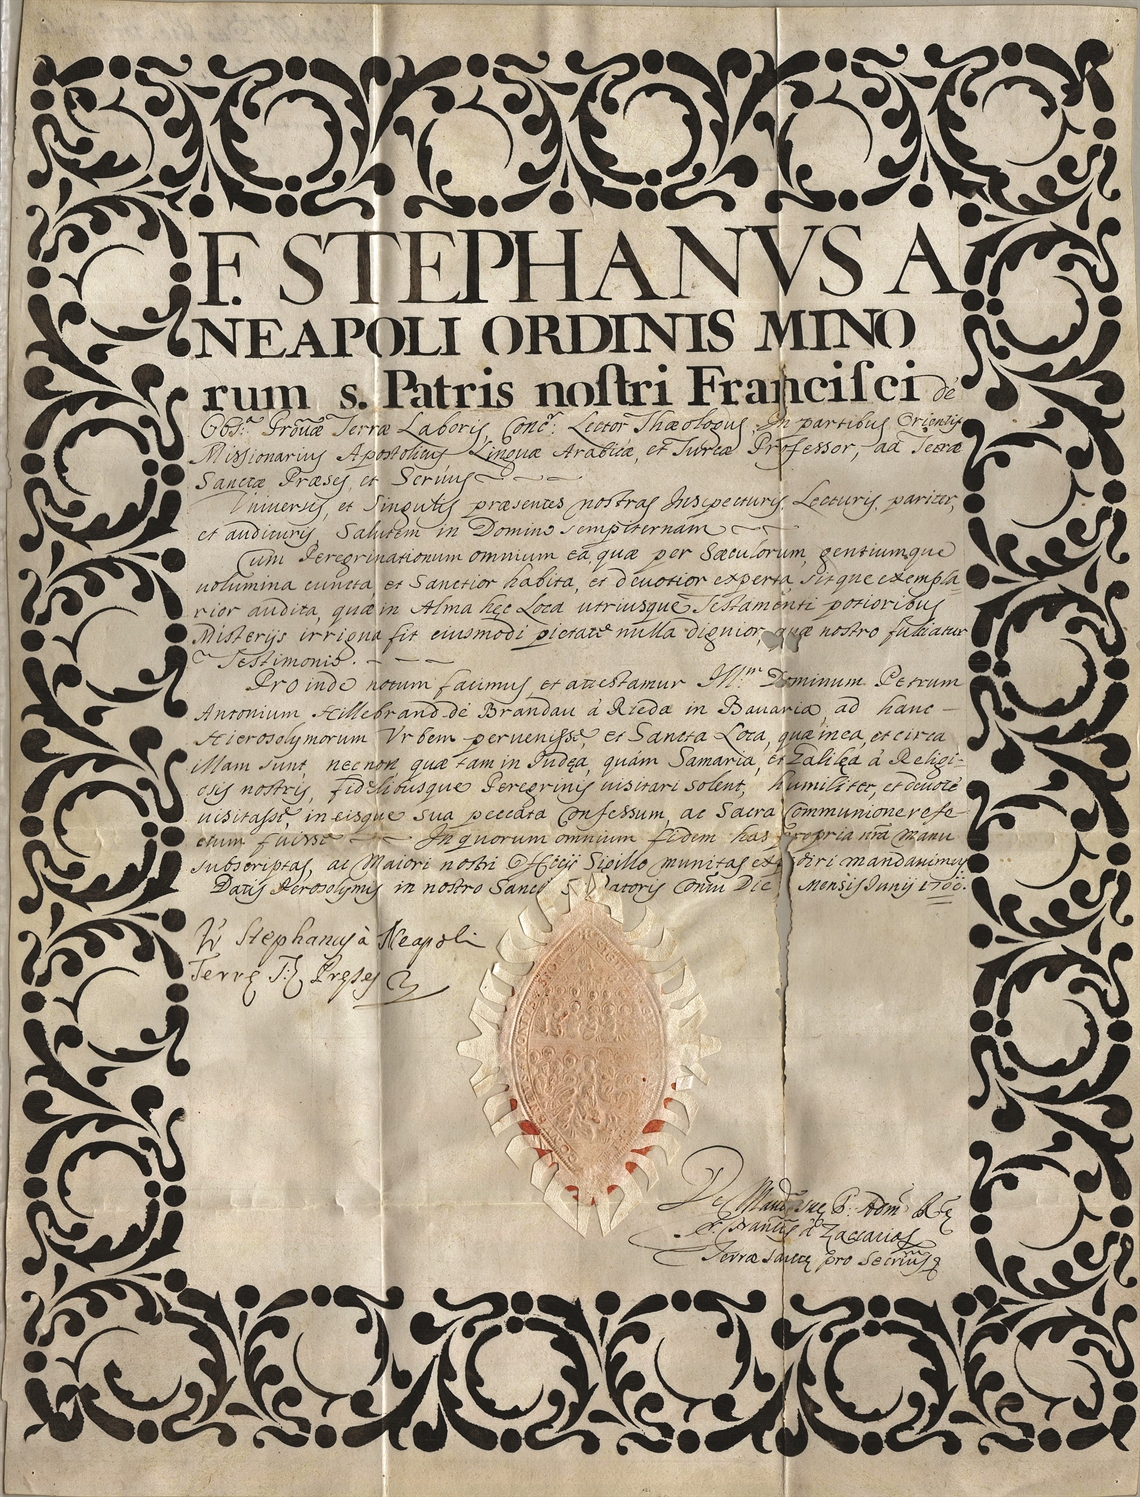 F. STEPHANVS A
NEAPOLI ORDINIS MINO
rum s. Patris noſtri Franciſci de
Obs: Prouæ Terræ Laboris, Conc: Lector Thæologus, In partibus Orientis
Missionarius Apostolicus Linguæ Arabicæ, et Turcæ Professor, ad Terræ
Sanctæ Præses, et Seruus
Vniuersis, et Singulis præsentes nostras Inspecturis, Lecturis, pariter,
et audituris, Salutem in Domino sempiternam
Cum Peregrinationum omnium ea, quæ per Sæculorum, gentiumque
uolumina cuncta, et Sanctior habita, et deuotior experta, sitque exempla-
rior audita, quæ in Alma hęc Loca utriusque Testamenti potioribus
Misterijs irrigua fit eiusmodi pietate nulla dignior, quæ nostro fulciatur
Testimonio.
Proinde notum facimus, et attestamur Ill.m Dominum Petrum
Antonium Hillebrand de Brandau à Riedæ in Bauaria, ad hanc
Hierosolymorum Vrbem peruenisse, et Sancta Loca, quæ in ea, et circa
illam sunt, necnon quæ tam in Judęa, quám Samaria, et Galilęa à Religi-
osis nostris, fidelibusque Peregrinis uisitari solent, humiliter, et deuote
uisitasse, in eisque sua peccata Confessum, ac Sacra Communione refe
ctum fuisse In quorum omnium fidem has propria nrã manu
subscriptas, ac Maiori nostri Officij Sigillo munitas expediri mandauimus
Datis Hierosolymis in nostro Sancti Saluatoris Conuu Die Mensis Junij 1700.
Fr Stephanus à Neapoli
Terrę S: Pręses
De Mand. suę P: Adm. Rę
à Zaccarias
Terræ Sanctę pro Secrius